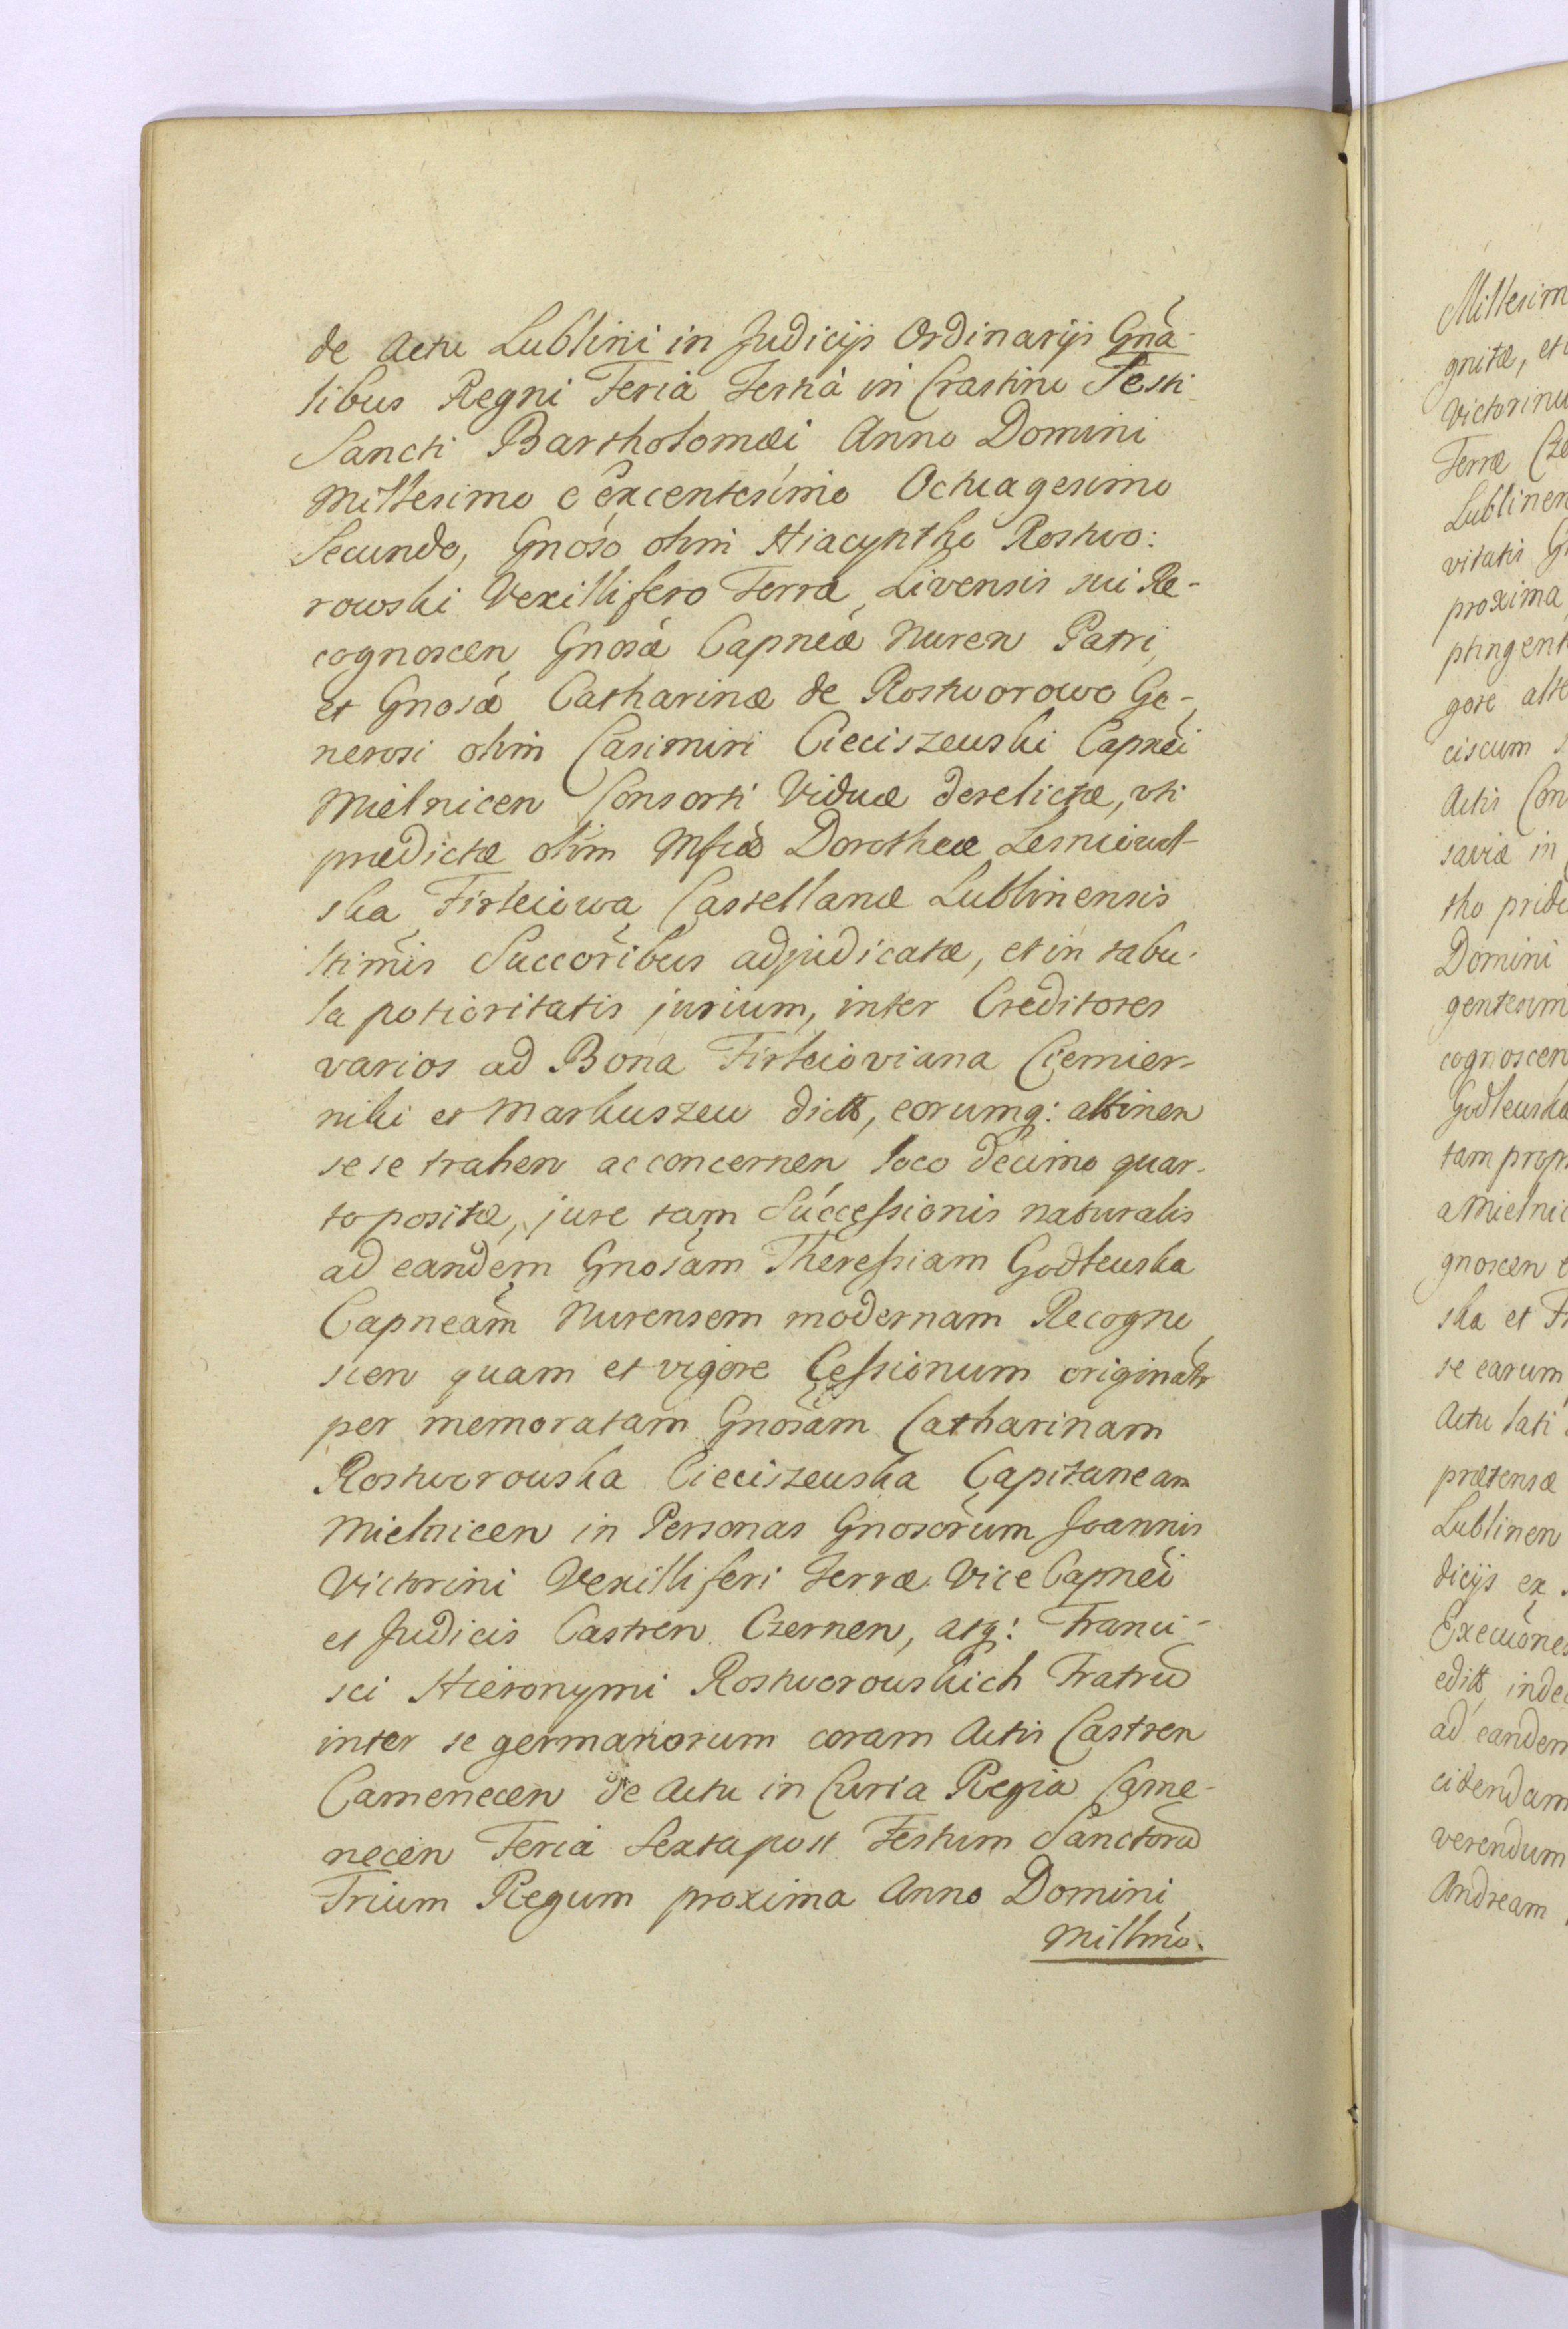 de Actu Lublini in Judicijs Ordinarijs Gnã-
libus Regni Feria Tertia in Crastino Festi
Sancti Bartholomæi Anno Domini
Millesimo Sexcentesimo Octuagesimo
Secundo, Gnoso olim Hiacyntho Rostwo:
rowski Vexillifero Terræ Livensis sui Re-
cognoscen Gnosæ Capneæ Nuren Patri,
et Gnosæ Catharinæ de Rostworowo Ge-
nerosi olim Casimiri Cieciszewski Capnei
Mielnicen Consorti Viduæ derelictæ, uti
prædictæ olim Mficæ Dorotheæ Lesniowol-
ska Firleiowa Castellanæ Lublinensis
ltimis Succoribus adjudicatæ, et in tabu-
la potioritatis jurium, inter Creditores
varios ad Bona Firleioviana Ciemier-
niki et Markuszew dicta, eorumq: attinen
se se trahen ac concernen loco decimo quar-
to positæ, jure tam Successionis naturalis
ad eandem Gnosam Theressiam Godlewska
Capneam Nurensem modernam Recogno
scen quam et vigore Cessionum originatr
per memoratam Gnosam Catharinam
Rostworowska Cieciszewska Capitaneam
Mielnicen in Personas Gnosorum Joannis
Victorini Vexilliferi Terræ Vice Capnei
et Judicis Castren Czernen, atq: Franci-
sci Hieronymi Rostworowskich Fratrũ
inter se germanorum coram Actis Castren
Camenecen de Actu in Curia Regia Came-
necen Feria Sexta post Festum Sanctorũ
Trium Regum proxima Anno Domini
Millmo.
Millesim
gnitæ, et
Victorinu
Terræ Cze
Lublinen
vitatis G
proxima
ptingent
gore alte
ciscum
Actis Con
saviæ in
tho pridi
Domini
gentesim
cognoscen
Godlewska
tam propr
a Mielnic
gnoscen
ska et Fr
se earum
Actu lati
prætensæ
Lublinen
dicijs ex
Execuones
edit inde
ad eandem
cidendam
verendum
Andream